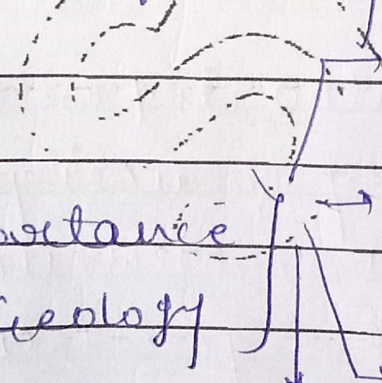 ortance
Geology